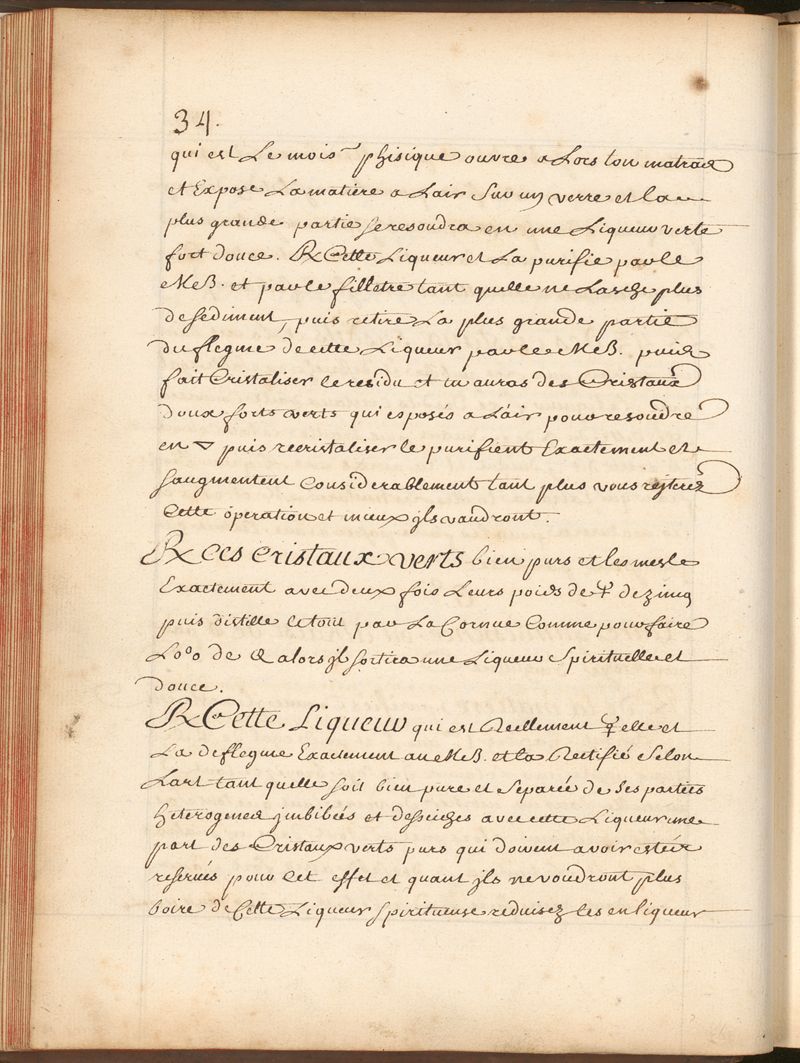 34.
qui est Le mois phisique ouvre a Lors ton matras
et Expose La matiere a Lair Sur un verre et la
plus grande partie se resoudra en une Liqueur verte
fort douce. ℞ Cette Liqueur et La purifie par le
MeB. et par le filletre tant quelle ne Lasche plus
de sediment, puis retire La plus grande partie
du flegme de cette Liqueur par le MeB. puis
fait Cristaliser le residu et tu auras des Cristaux
doux forts verts qui esposés a Láir pour resoudre
en 🜄 puis recristaliser le purifient Exactement et
saugmentent Considerablement tant plus vous rejterez
Cette óperation et mieux jls vaudront.
℞ ces cristaux verts bien purs et les mesle
Exactement avec deux fois Leurs poids de de zinq
puis distille le tout par La Cornue Comme pour faire
L o°o de alors jl sortira une Liqueur Spirituelle et
douce.
℞ Cette Liqueur qui est Reellement elle et
La deflegme Exactement au MeB. et la Rectifié Selon
Lart tant quelle soit bien pure et separée de ses parties
heterogenes jmbibés et desseichés avec cette Liqueur une
part des Cristaux verts purs qui doivent avoir esté
reservés pour cet effet et quant jls ne voudront plus
boire de Cette Liqueur spiritueuse reduisez les en liqueur